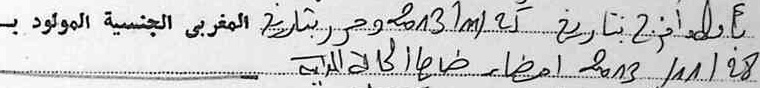 وحرر بتاريخ المغربي الجنسية المولود بـ 2013/11/25 بتاريخ
28/11/2013 امضاء ضابط الحالة المدنية